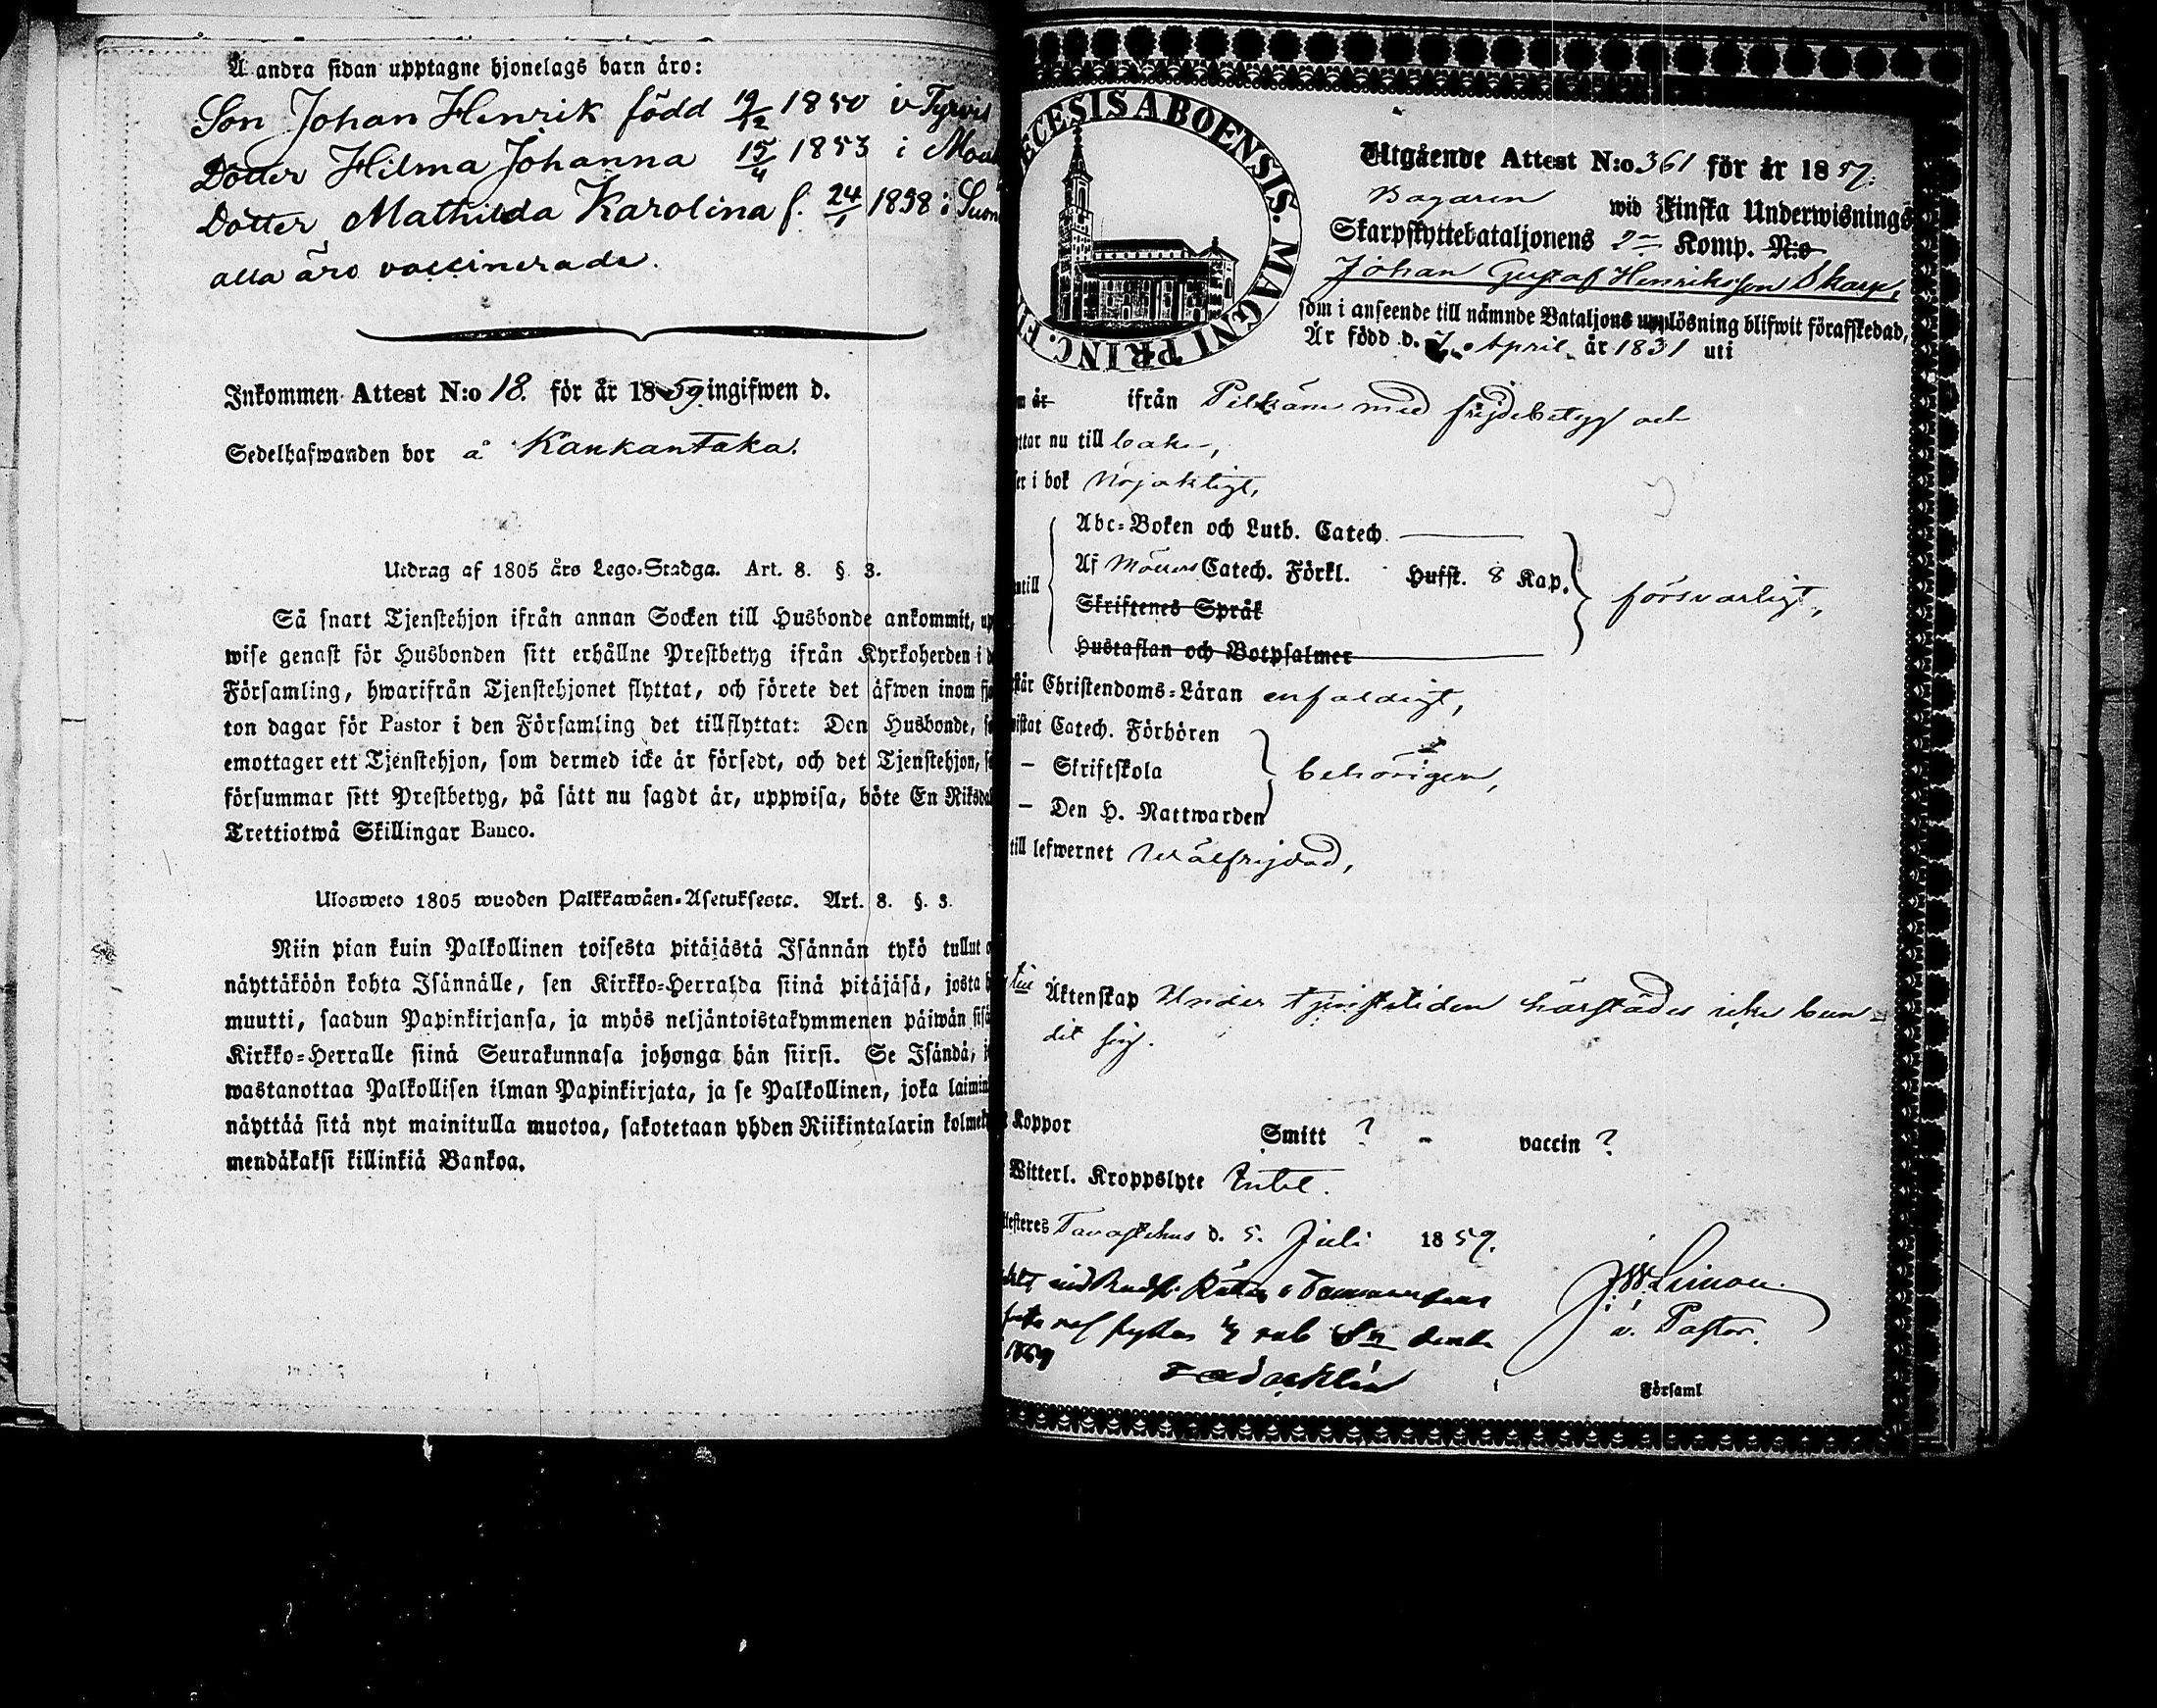 Å andra sidan upptagne hjonelags barn äro:
Son Johan Henrik född 19/12 1850 i Tyrvis
Dotter Hilma Johanna 15/4 1853 i
Dotter Mathilda Karolina f. 24/1 1858 i
alla äro vaccinerade.
Inkommen Attest N:o 18. för år 1859 ingifwen d.
Sedelhafwanden bor å Kankantaka.
Utdrag af 1805 års Lego-Stadga. Art. 8. §. 3.
Så snart Tjenstehjon ifrån annan Socken till Husbonde ankommit,
wise genast för Husbonden sitt erhållne Prestbetyg ifrån Kyrkoherden i
Församling, hwarifrån Tjenstehjonet flyttat, och förete det äfwen inom
ton dagar för Pastor i den Församling det tillflyttat: Den Husbonde,
emottager ett Tjenstehjon, som dermed icke är försedt, och det Tjenstehjon,
försummar sitt Prestbetyg, på sätt nu sagdt är, uppwisa, böte En Riksdal
Trettiotwå Skillingar Banco.
Ulosweto 1805 wuoden Palkkawäen-Asetuksesta. Art. 8. §. 3.
Niin pian kuin Palkollinen toisesta pitäjästä Isännän tykö tullut
näyttäköön kohta Isännälle, sen Kirkko-Herralda siinä pitäjäsä, josta
muutti, saadun Papinkirjansa, ja myös neljäntoistakymmenen päiwän
Kirkko-Herralle siinä Seurakunnasa johonga hän siirsi. Se Isändä,
wastanottaa Palkollisen ilman Papinkirjata, ja se Palkollinen, joka
näyttää sitä nyt mainitulla muotoa, sakotetaan yhden Riikintalarin
mendäkaksi killinkiä Bankoa.
ECESIS ABOENSIS. MAGNI PRINC.
Utgående Attest N:o 361 för år 1859.
Bagaren wid Finska Underwisnings
Skarpskyttebataljonens 2 Komp. N:o
Johan Gustaf Henriksson Skarp,
som i anseende till nämnde Bataljons upplösning blifwit förafskedad,
Är född d. 7 April år 1831 uti
ifrån Pelkäne med frejdebetyg och
nu till baka,
i bok Nöjaktigt,
Abc-Boken och Luth. Catech.
Af Catech. Förkl. Husst. 8 Kap.
Skriftenes Språk
Hustaflan och Botpsalmer
försvarligt,
Christendoms-Läran enfaldigt,
Catech. Förhören
— Skriftskola
— Den H. Nattwarden
behörigen,
till lefwernet Wälfrejdad,
till Äktenskap Under tjenstetiden härstädes icke bun-
dit sig.
Koppor Smitt ? vaccin ?
Witterl. Kroppslyte Intet.
Tavastehus d. 5. Juli 1859.
v. Pastor.
1859
Församl